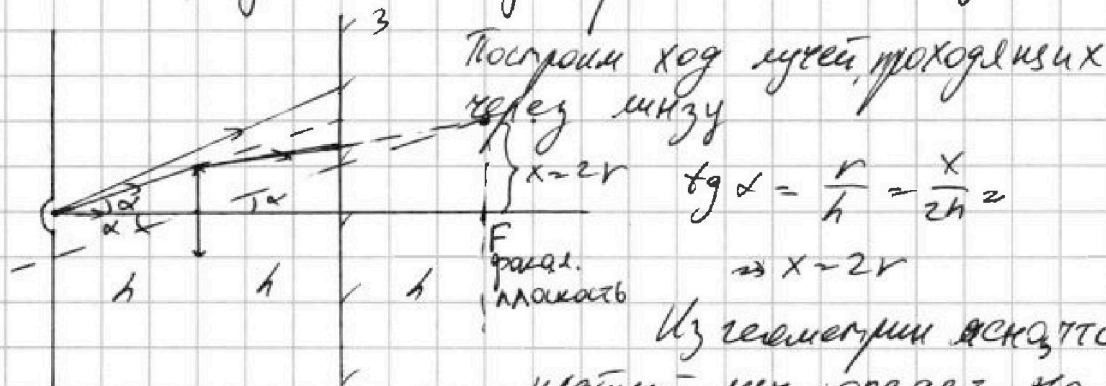 З
Построим ход лучей, проходящих
через линзу
x = 2r
tg α = r/h = x/2h =
α
α
α
F
фокал.
плоскость
h
h
h
=> x = 2r
Из геометрии ясно, что